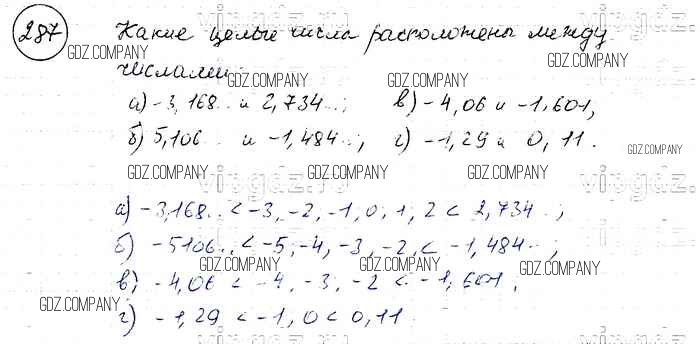 287 Какие целые числа расположены между
числами:
а) -3,168.. и 2,734..; в) -4,06 и -1,601,
б) 5,106.. и -1,484..; г) -1,29 и 0,11.
а) -3,168.. < -3, -2, -1, 0, 1, 2 < 2,734..;
б) -5106.. < -5, -4, -3, -2, < -1,484..;
в) -4,06 < -4, -3, -2 < -1,601.
г) -1,29 < -1, 0 < 0,11.
GDZ.COMPANY
GDZ.COMPANY
GDZ.COMPANY
GDZ.COMPANY
GDZ.COMPANY
GDZ.COMPANY
GDZ.COMPANY
GDZ.COMPANY
GDZ.COMPANY
GDZ.COMPANY
GDZ.COMPANY
GDZ.COMPANY
GDZ.COMPANY